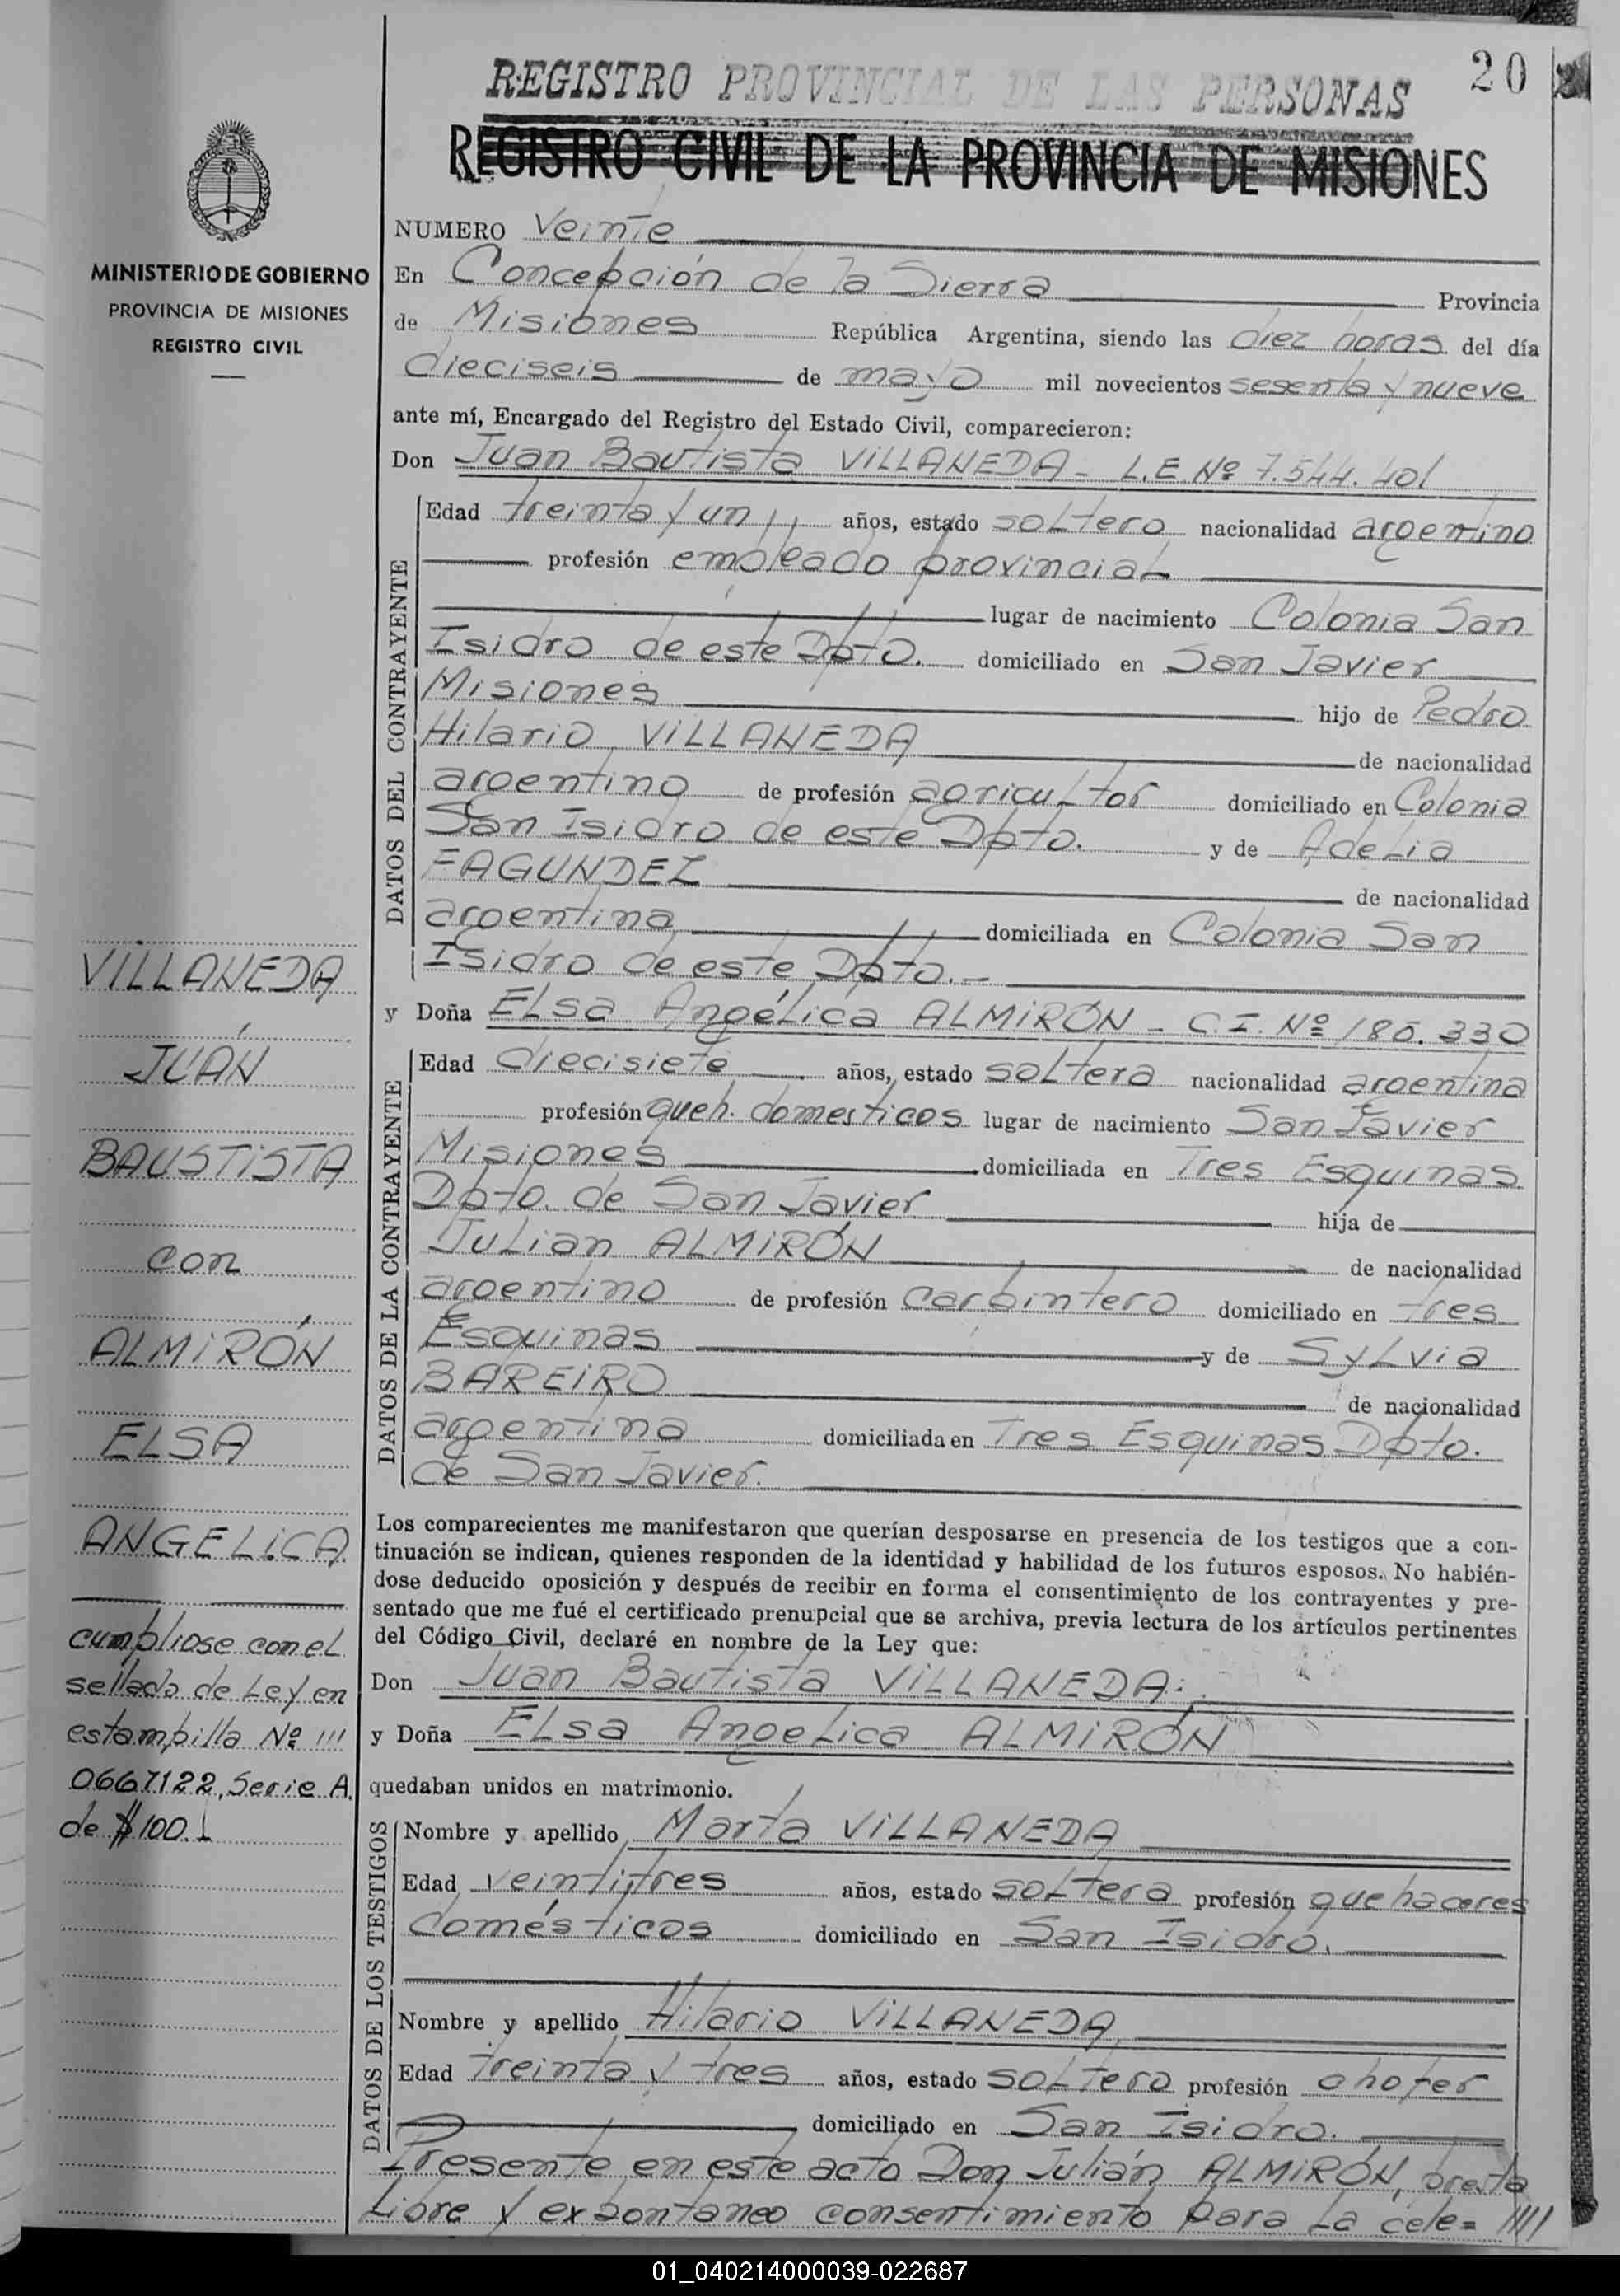 20
REGISTRO PROVINCIAL DE LAS PERSONAS
REGISTRO CIVIL DE LA PROVINCIA DE MISIONES
MINISTERIO DE GOBIERNO
PROVINCIA DE MISIONES
REGISTRO CIVIL
NUMERO Veinte
En Concepción de la Sierra Provincia
de Misiones República Argentina, siendo las diez horas del día
dieciseis de mayo mil novecientos sesenta y nueve
ante mí, Encargado del Registro del Estado Civil, comparecieron:
Don Juan Bautista VILLANEDA - L.E. Nº 7.544.401
DATOS DEL CONTRAYENTE
Edad treinta y un años, estado soltero nacionalidad argentino
profesión empleado provincial
lugar de nacimiento Colonia San
Isidro de este Dpto. domiciliado en San Javier
Misiones hijo de Pedro
Hilario VILLANEDA de nacionalidad
argentino de profesión agricultor domiciliado en Colonia
San Isidro de este Dpto. y de Adelia
FAGUNDEZ de nacionalidad
argentina domiciliada en Colonia San
Isidro de este Dpto.-
y Doña Elsa Angélica ALMIRÓN - C.I. Nº 180.330
DATOS DE LA CONTRAYENTE
Edad diecisiete años, estado soltera nacionalidad argentina
profesión queh. domesticos lugar de nacimiento San Javier
Misiones domiciliada en Tres Esquinas
Dpto. de San Javier hija de
Julian ALMIRÓN de nacionalidad
argentino de profesión carpintero domiciliado en tres
Esquinas y de Sylvia
BAREIRO de nacionalidad
argentina domiciliada en Tres Esquinas Dpto.
de San Javier.
Los comparecientes me manifestaron que querían desposarse en presencia de los testigos que a con-
tinuación se indican, quienes responden de la identidad y habilidad de los futuros esposos. No habién-
dose deducido oposición y después de recibir en forma el consentimiento de los contrayentes y pre-
sentado que me fué el certificado prenupcial que se archiva, previa lectura de los artículos pertinentes
del Código Civil, declaré en nombre de la Ley que:
Don Juan Bautista VILLANEDA:
y Doña Elsa Angelica ALMIRÓN
quedaban unidos en matrimonio.
DATOS DE LOS TESTIGOS
Nombre y apellido Marta VILLANEDA
Edad veintitres años, estado soltera profesión quehaceres
domésticos domiciliado en San Isidro.
Nombre y apellido Hilario VILLANEDA
Edad treinta y tres años, estado soltero profesión chofer
domiciliado en San Isidro.
Presente en este acto Don Julián ALMIRÓN, presta
Libre y expontaneo consentimiento para la cele= ////
VILLANEDA
JUAN
BAUSTISTA
con
ALMIRÓN
ELSA
ANGELICA
cumpliose con el
sellado de Ley en
estampilla Nº ///
0667122, Serie A.
de $100.-
01_040214000039-022687